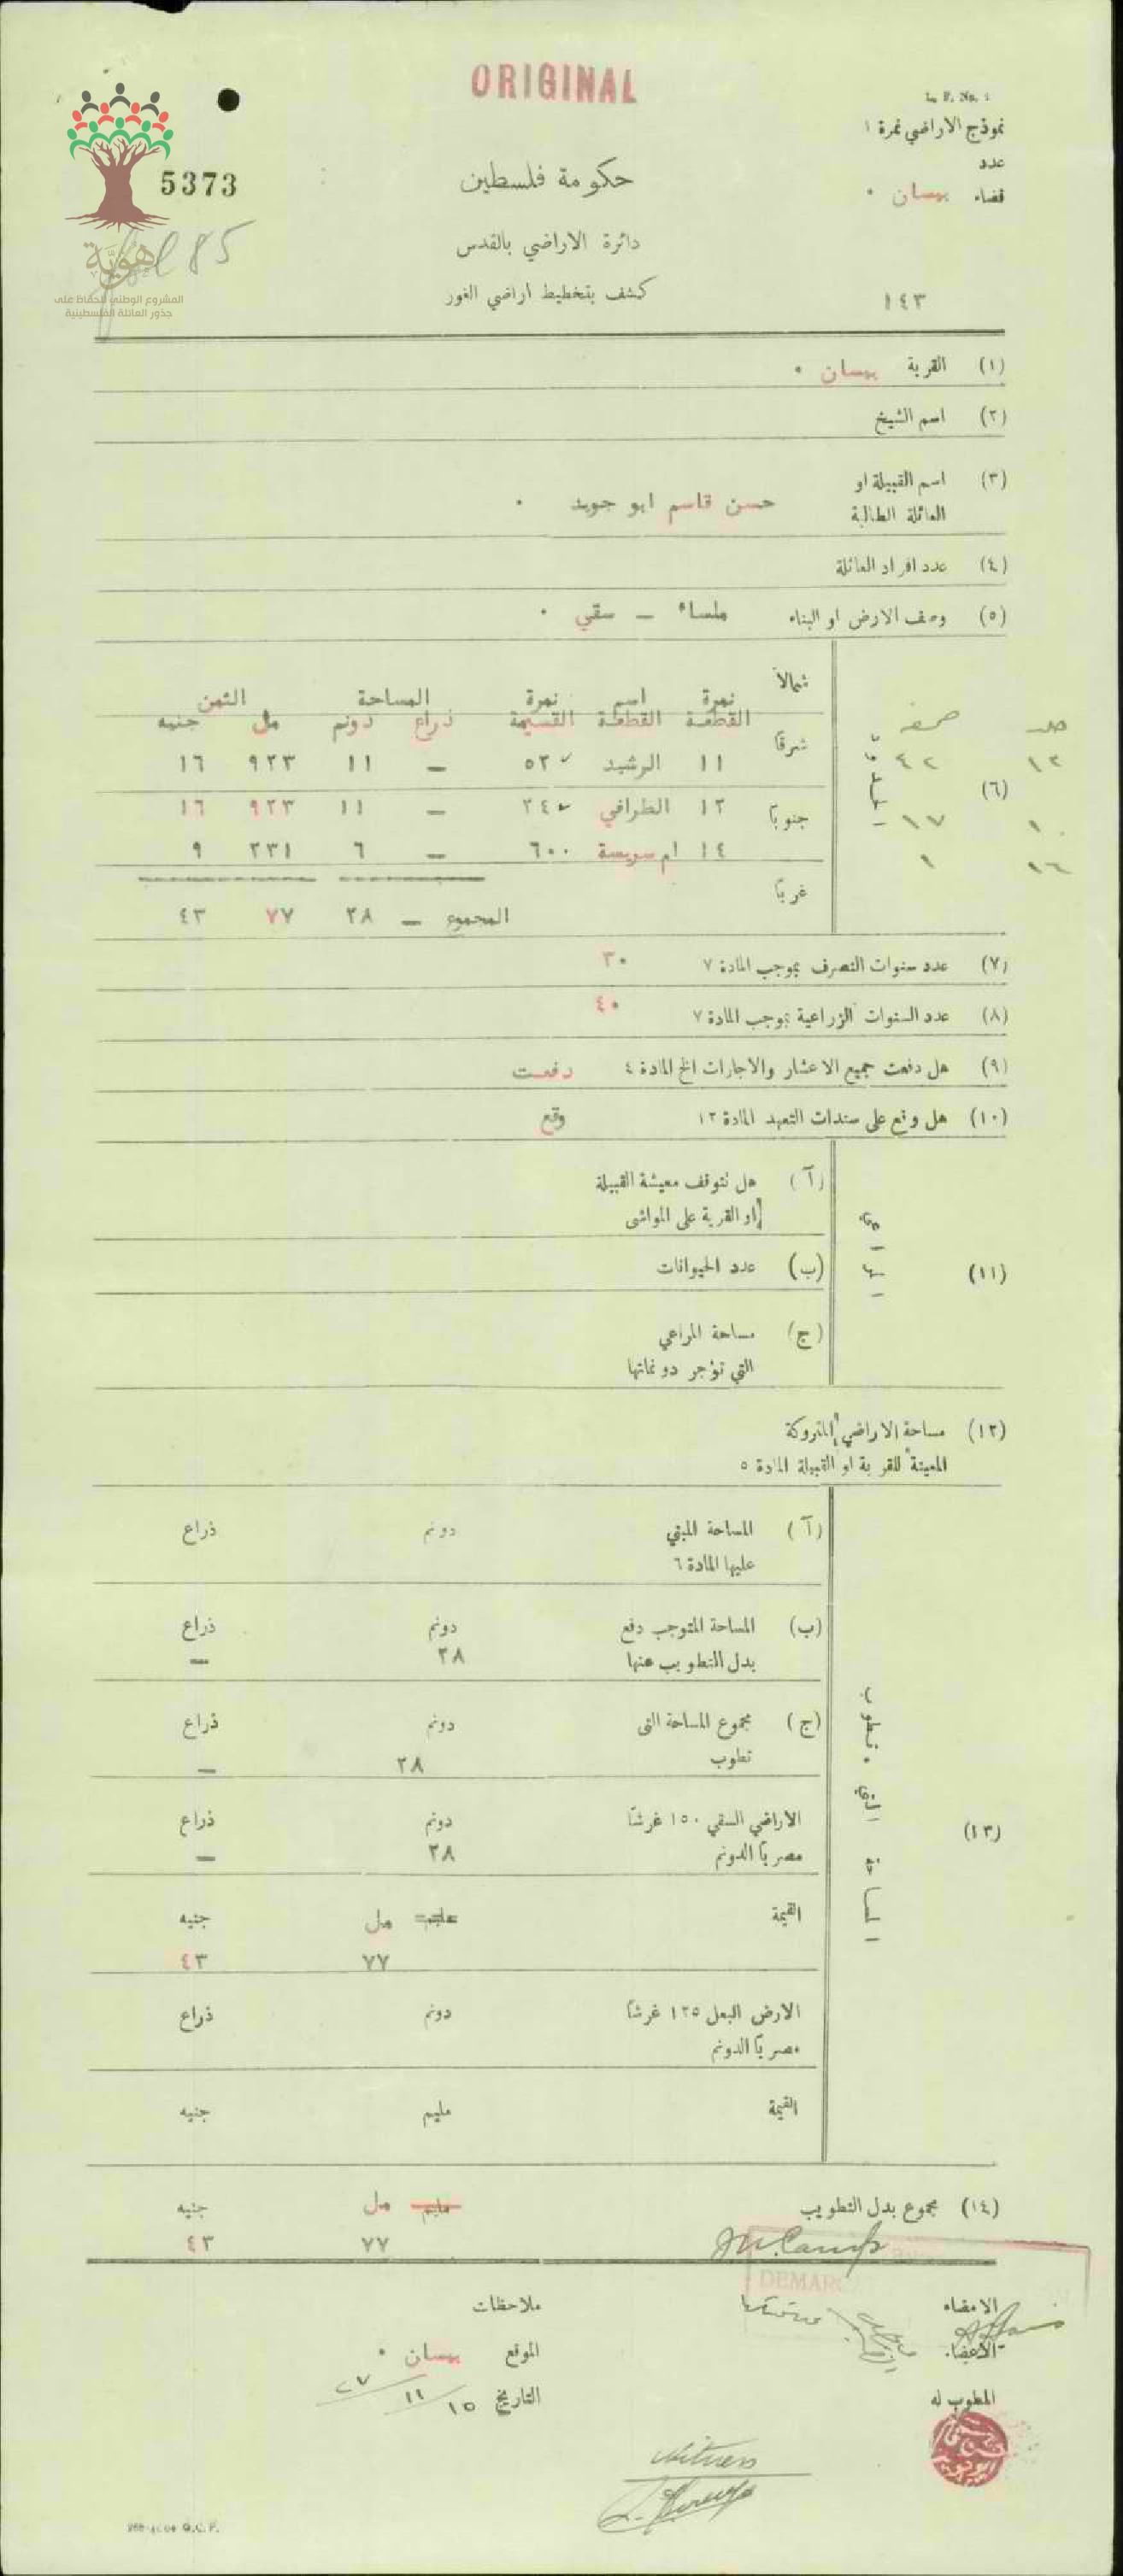 ORIGINAL
L. F. No. 1
نموذج الاراضي نمرة ١
عدد
قضاء بيسان ٠
5373
حكومة فلسطين
85
دائرة الاراضي بالقدس
هُوِيَّة
المشروع الوطني للحفاظ على
جذور العائلة الفلسطينية
كشف بتخطيط اراضي الغور
١٤٣
(١) القرية بيسان ٠
(٢) اسم الشيخ
(٣) اسم القبيلة او
العائلة الطالبة
حسن قاسم ابو جويد ٠
(٤) عدد افراد العائلة
(٥) وصف الارض او البناء ملساء — سقي ٠
شمالاً
نمرة اسم نمرة المساحة الثمن
القطعة القطعة القسيمة ذراع دونم مل جنيه
صحيفة
شرقاً
١١ الرشيد ٥٢ — ١١ ٩٢٣ ١٦
١٣ ٤٢
(٦) الحدود
١٢ الطرافي ٢٤ — ١١ ٩٢٣ ١٦
جنوباً
١٧
١٤ ام سويسة ٦٠٠ — ٦ ٢٣١ ٩
١
غرباً
المجموع — ٢٨ ٧٧ ٤٣
(٧) عدد سنوات التصرف بموجب المادة ٧ ٣٠
(٨) عدد السنوات الزراعية بموجب المادة ٧ ٤٠
(٩) هل دفعت جميع الاعشار والاجارات الخ المادة ٤ دفعت
(١٠) هل وقع على سندات التعهد المادة ١٢ وقع
(١١) المراعي
(آ) هل تتوقف معيشة القبيلة
او القرية على المواشى
(ب) عدد الحيوانات
(ج) مساحة المراعي
التي تؤجر دونماتها
(١٢) مساحة الاراضي المتروكة
المعينة للقرية او القبيلة المادة ٥
(١٣) المساحة التي تطوب
(آ) المساحة المبني دونم ذراع
عليها المادة ٦
(ب) المساحة المتوجب دفع دونم ذراع
بدل التطويب عنها ٢٨ —
(ج) مجموع المساحة التى دونم ذراع
تطوب ٢٨ —
الاراضي السقي ١٥٠ غرشاً دونم ذراع
مصرياً الدونم ٢٨ —
القيمة مليم مل جنيه
٧٧ ٤٣
الارض البعل ١٢٥ غرشاً دونم ذراع
مصرياً الدونم
القيمة مليم جنيه
(١٤) مجموع بدل التطويب مليم مل جنيه
٧٧ ٤٣
DEMARC
الامضاء
ملاحظات
الاعضاء
الموقع بيسان ٠
التاريخ ١٥/١١/٢٧
المطوب له
Witness